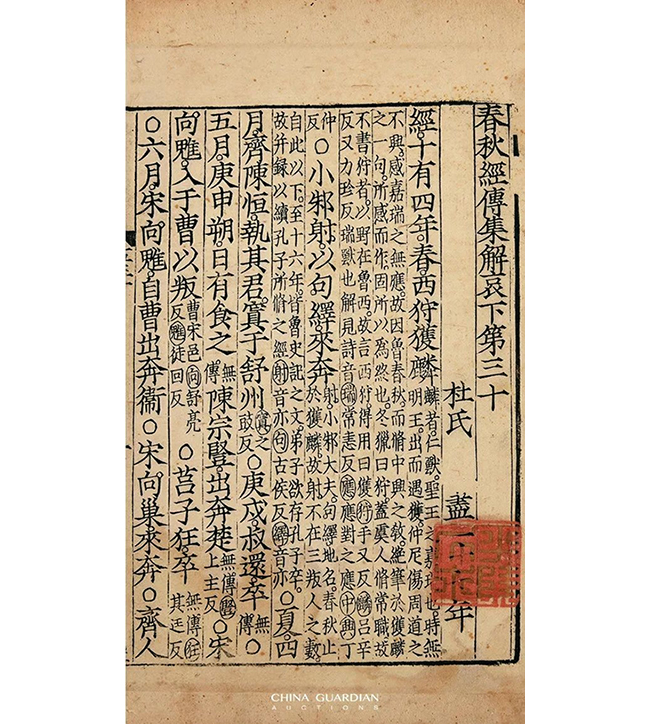 春秋經傳集解哀下第三十
杜氏 盡 年
經十有四年春西狩獲麟麟者仁獸聖王之嘉瑞也時無
明王出而遇獲仲尼傷周道之
不興感嘉瑞之無應故因魯春秋而脩中興之教絶筆於獲麟
之一句所感而作固所以為終也冬獵曰狩蓋虞人脩常職故
不書狩者以野在魯西故言西狩得用曰獲狩手又反麟吕辛
反又力珍反瑞獸也解見詩音瑞常恚反應應對之應中興丁
仲
反○小邾射以句繹來奔射小邾大夫句繹地名春秋止
於獲麟故射不在三叛人之數
自此以下至十六年皆魯史記之文弟子欲存孔子卒
故并録以續孔子所脩之經射音亦句古侯反繹音亦○夏四
月齊陳恒執其君寘于舒州寘之豉反○庚戌叔還卒無傳○
五月庚申朔日有食之無傳陳宗豎出奔楚無傳豎上主反○宋
向魋入于曹以叛曹宋邑向舒亮反魋徒回反○莒子狂卒無傳狂其廷反
○六月宋向魋自曹出奔衛○宋向巢來奔○齊人
CHINA GUARDIAN
AUCTIONS